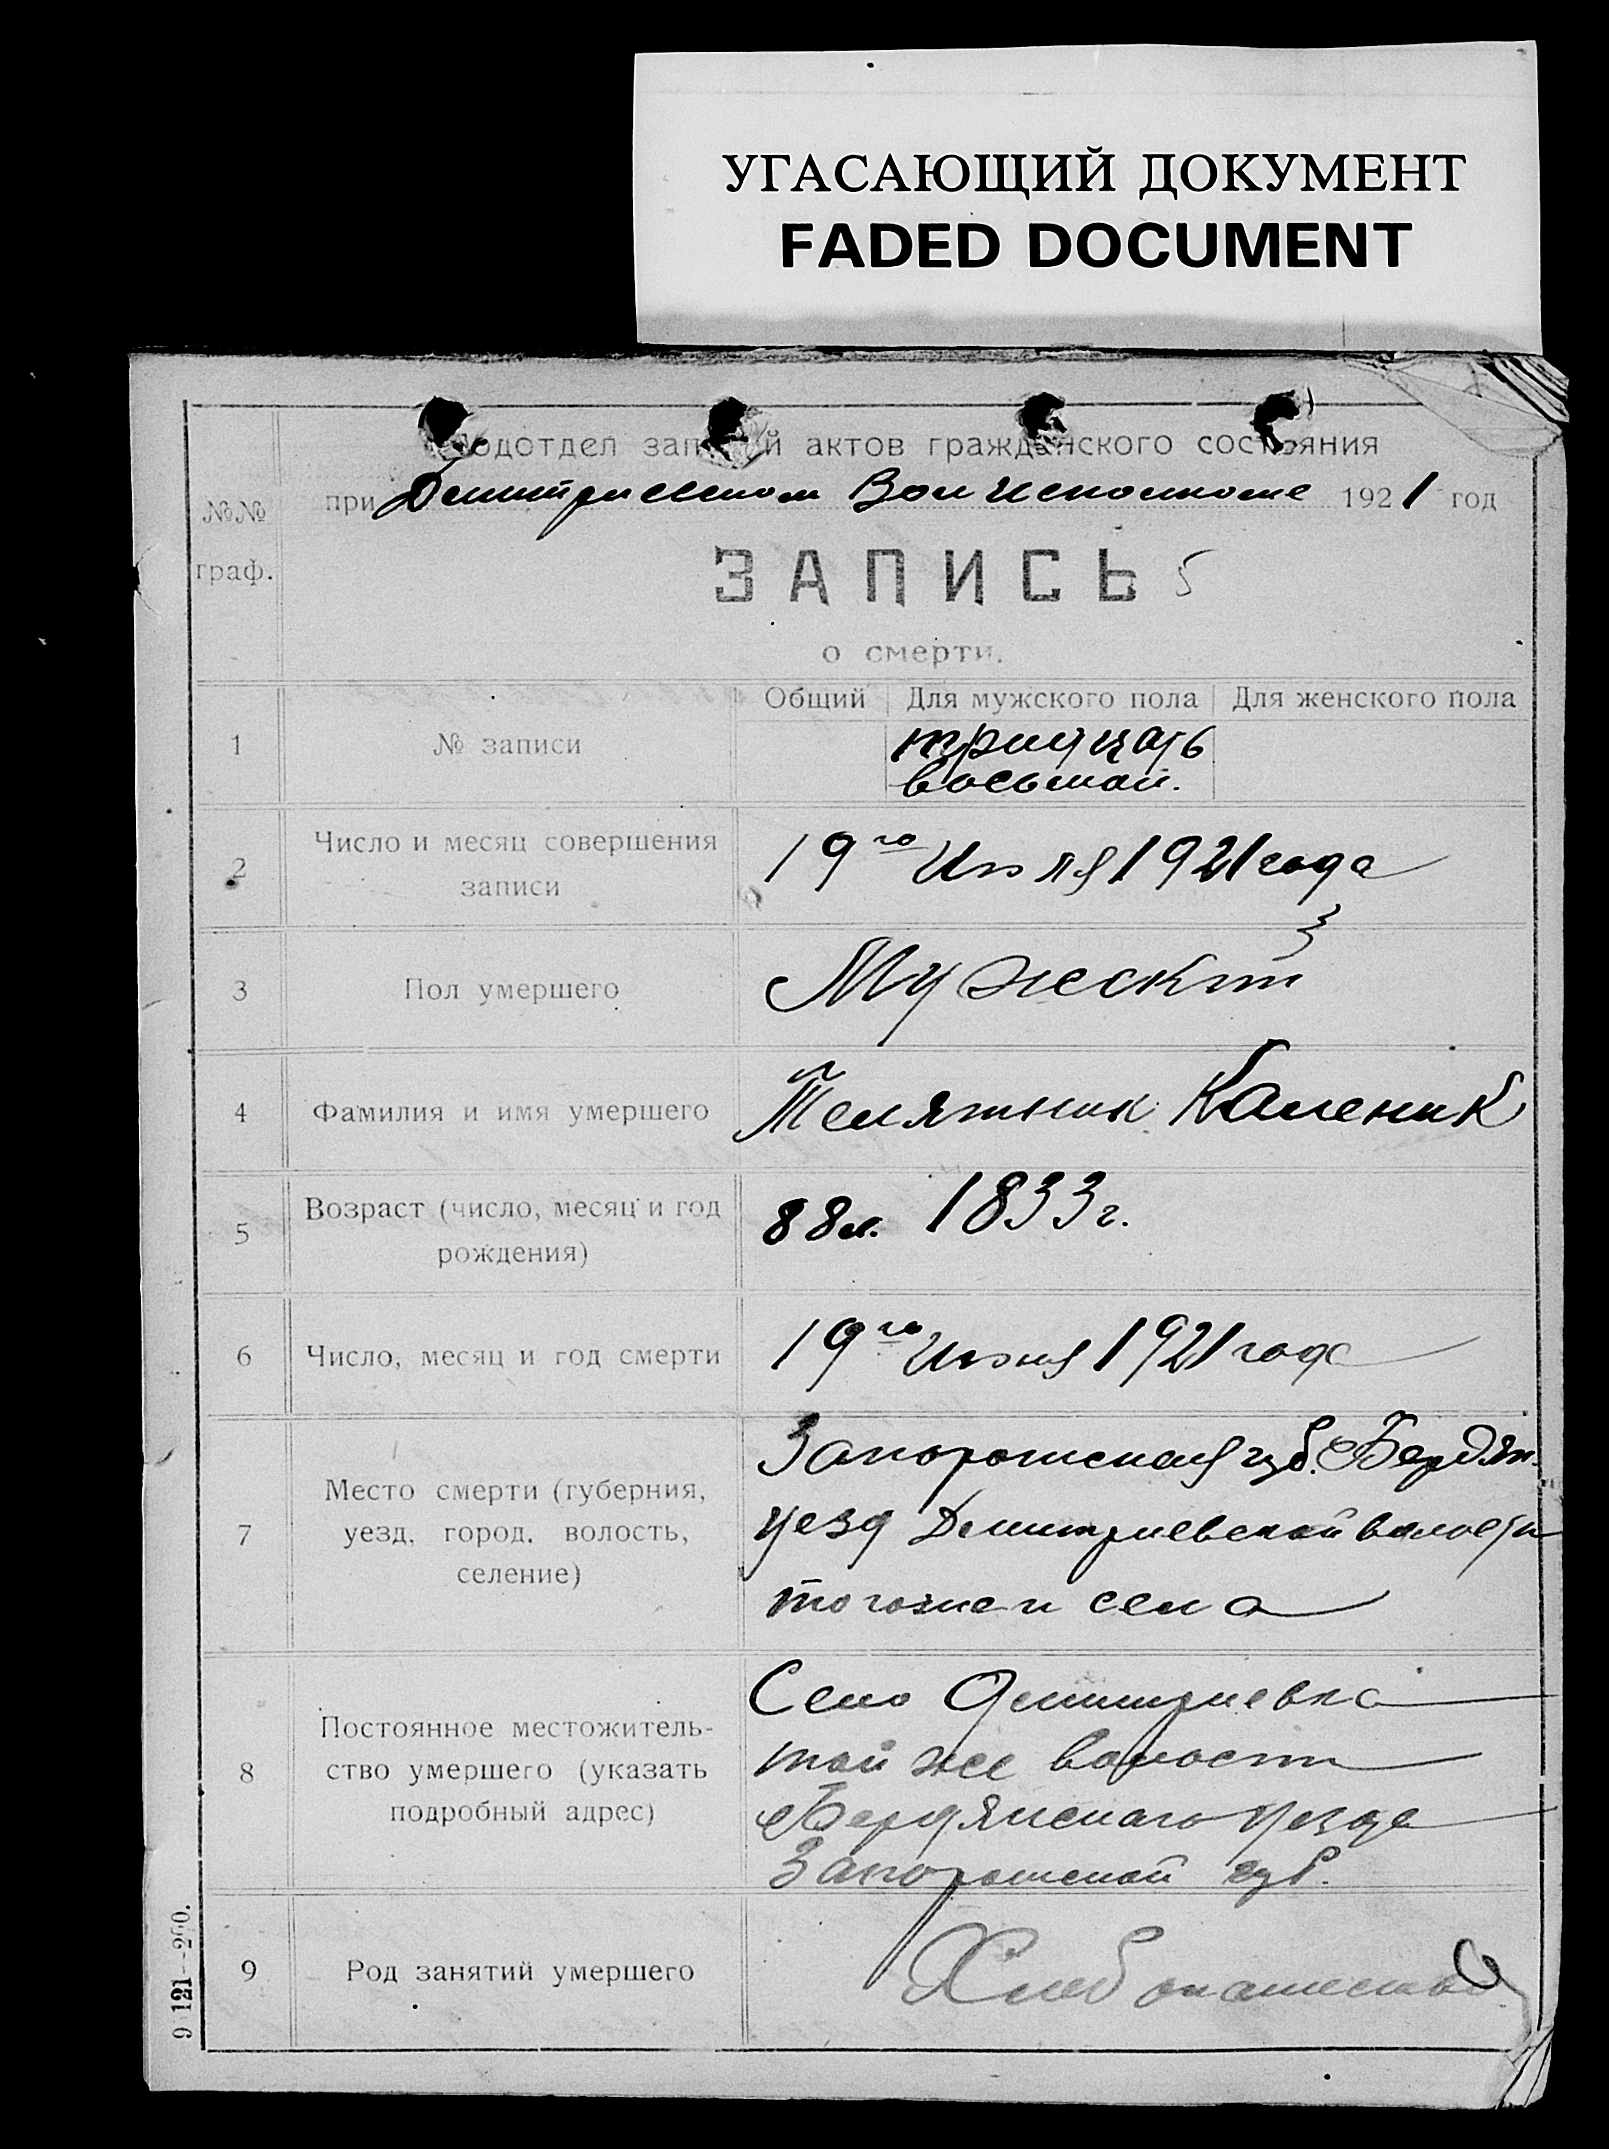 УГАСАЮЩИЙ ДОКУМЕНТ
FADED DOCUMENT
Подотдел записей актов гражданского состояния
№№
граф.
при Дмитриевском Волисполкоме 1921 год
ЗАПИСЬ
о смерти.
Общий Для мужского пола Для женского пола
1 № записи
тридцать
восьмой.
2 Число и месяц совершения
записи
19го Июля 1921 года
3 Пол умершего
Мужеский
4 Фамилия и имя умершего
Телятник Каленик
5 Возраст (число, месяц и год
рождения)
88 л. 1833 г.
6 Число, месяц и год смерти
19го Июня 1921 года
7 Место смерти (губерния,
уезд, город, волость,
селение)
Запорожская губ. Бердян.
уезд Дмитриевской волости
того же и села
8 Постоянное местожитель-
ство умершего (указать
подробный адрес)
Село Дмитриевка
той же волости
Бердянского уезда
Запорожской губ.
9 Род занятий умершего
Хлебопашество